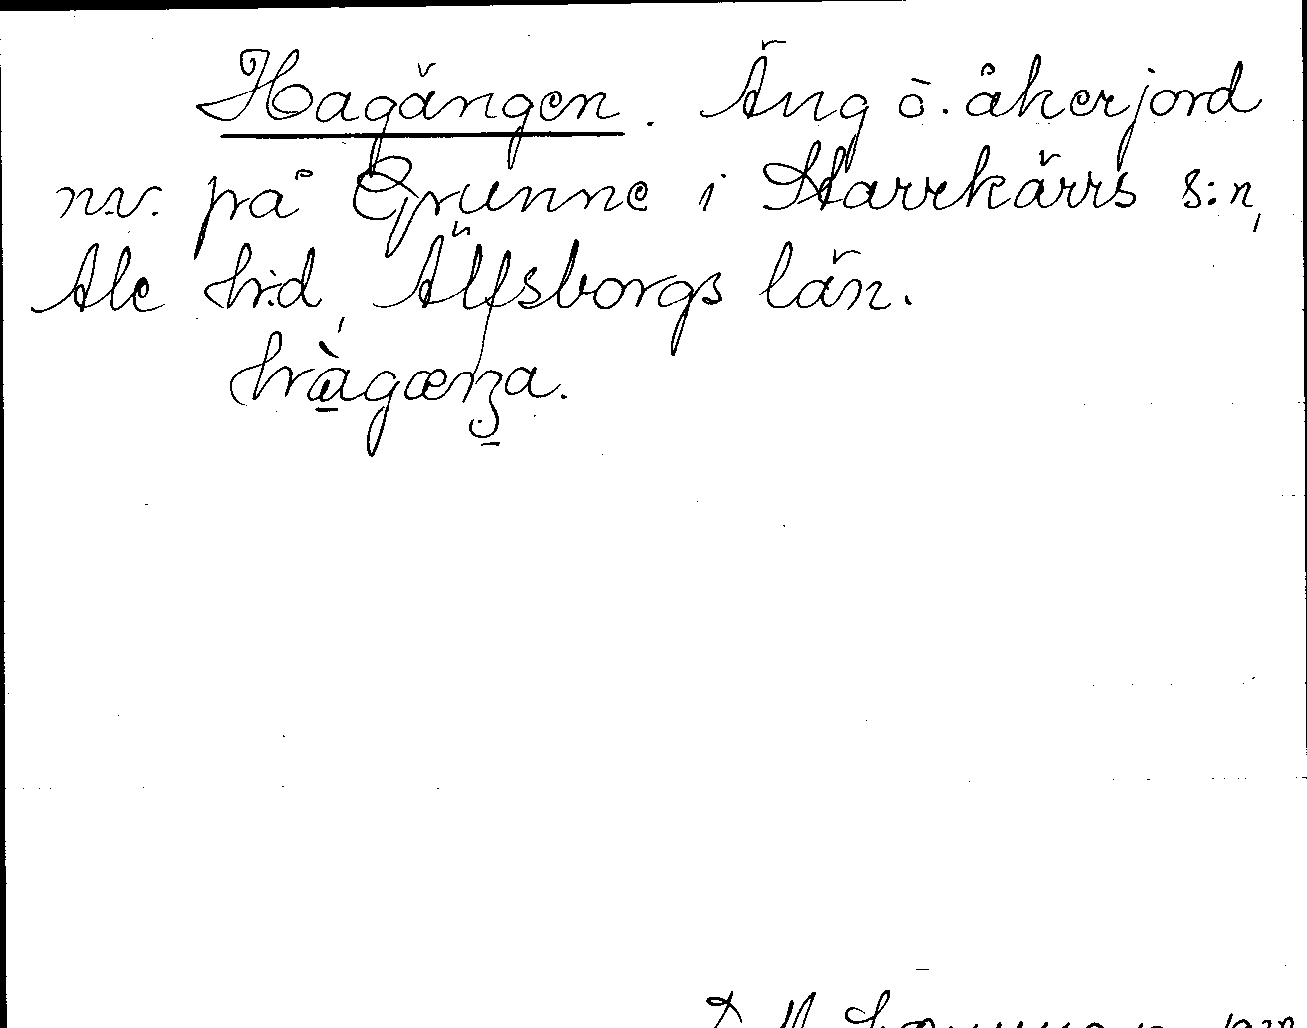 Hagängen. Äng o. åkerjord
n.v. på Grunne i Starrkärrs s:n,
Ale h:d, Älfsborgs län.
hàgæŋa.